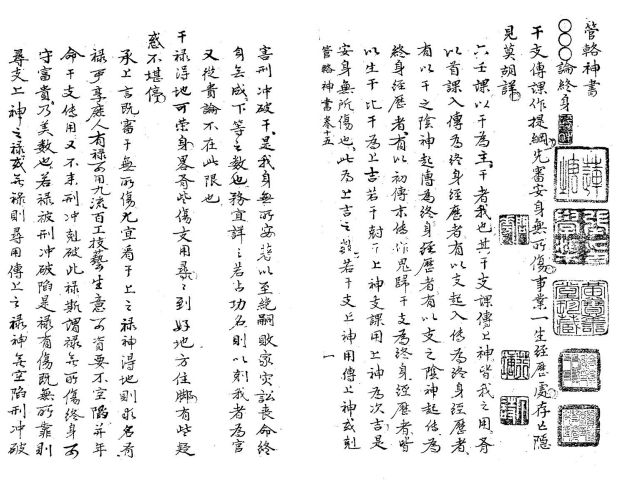 管輅神書
○○○論終身
干支傳課作提綱先審安身無所傷事業一生經歷處存亡隱
見莫胡詳
六壬課以干為主干者我也其干支課傳上神皆我之用矣有
以首課入傳為終身經歷者有以支起入傳為終身經歷者
有以干之陰神起傳為終身經歷者有以支之陰神起傳為
終身經歷者有以初傳末傳作鬼歸干支為終身經歷者皆
以生干比干為上吉若干剋下上神支課用上神為次吉是
安身無所傷也此為上吉之 若干支上神用傳上神或剋
管輅神書卷十五
一
害刑冲破干是我身無所安 以至絕嗣敗家官訟喪命終
身無成下等之數也務宜詳之若占功名則以剋我者為官
又役貴論不在此限也
干祿得地可榮身畧有些傷支用尋尋到好地方住脚有些疑
惑不堪停
承上言既審于無所傷尤宜看于上之祿神得地則求名有
祿可享庶人有祿可用九流百工技藝生意可資要不空陷并年
命干支傳用又不来刑冲剋破此祿斯謂祿無所傷終身可
守富貴乃美數也若祿被刑冲破陷是祿有傷既無所靠則
尋支上神之祿或無祿則尋用傳上之祿神無空陷刑冲破